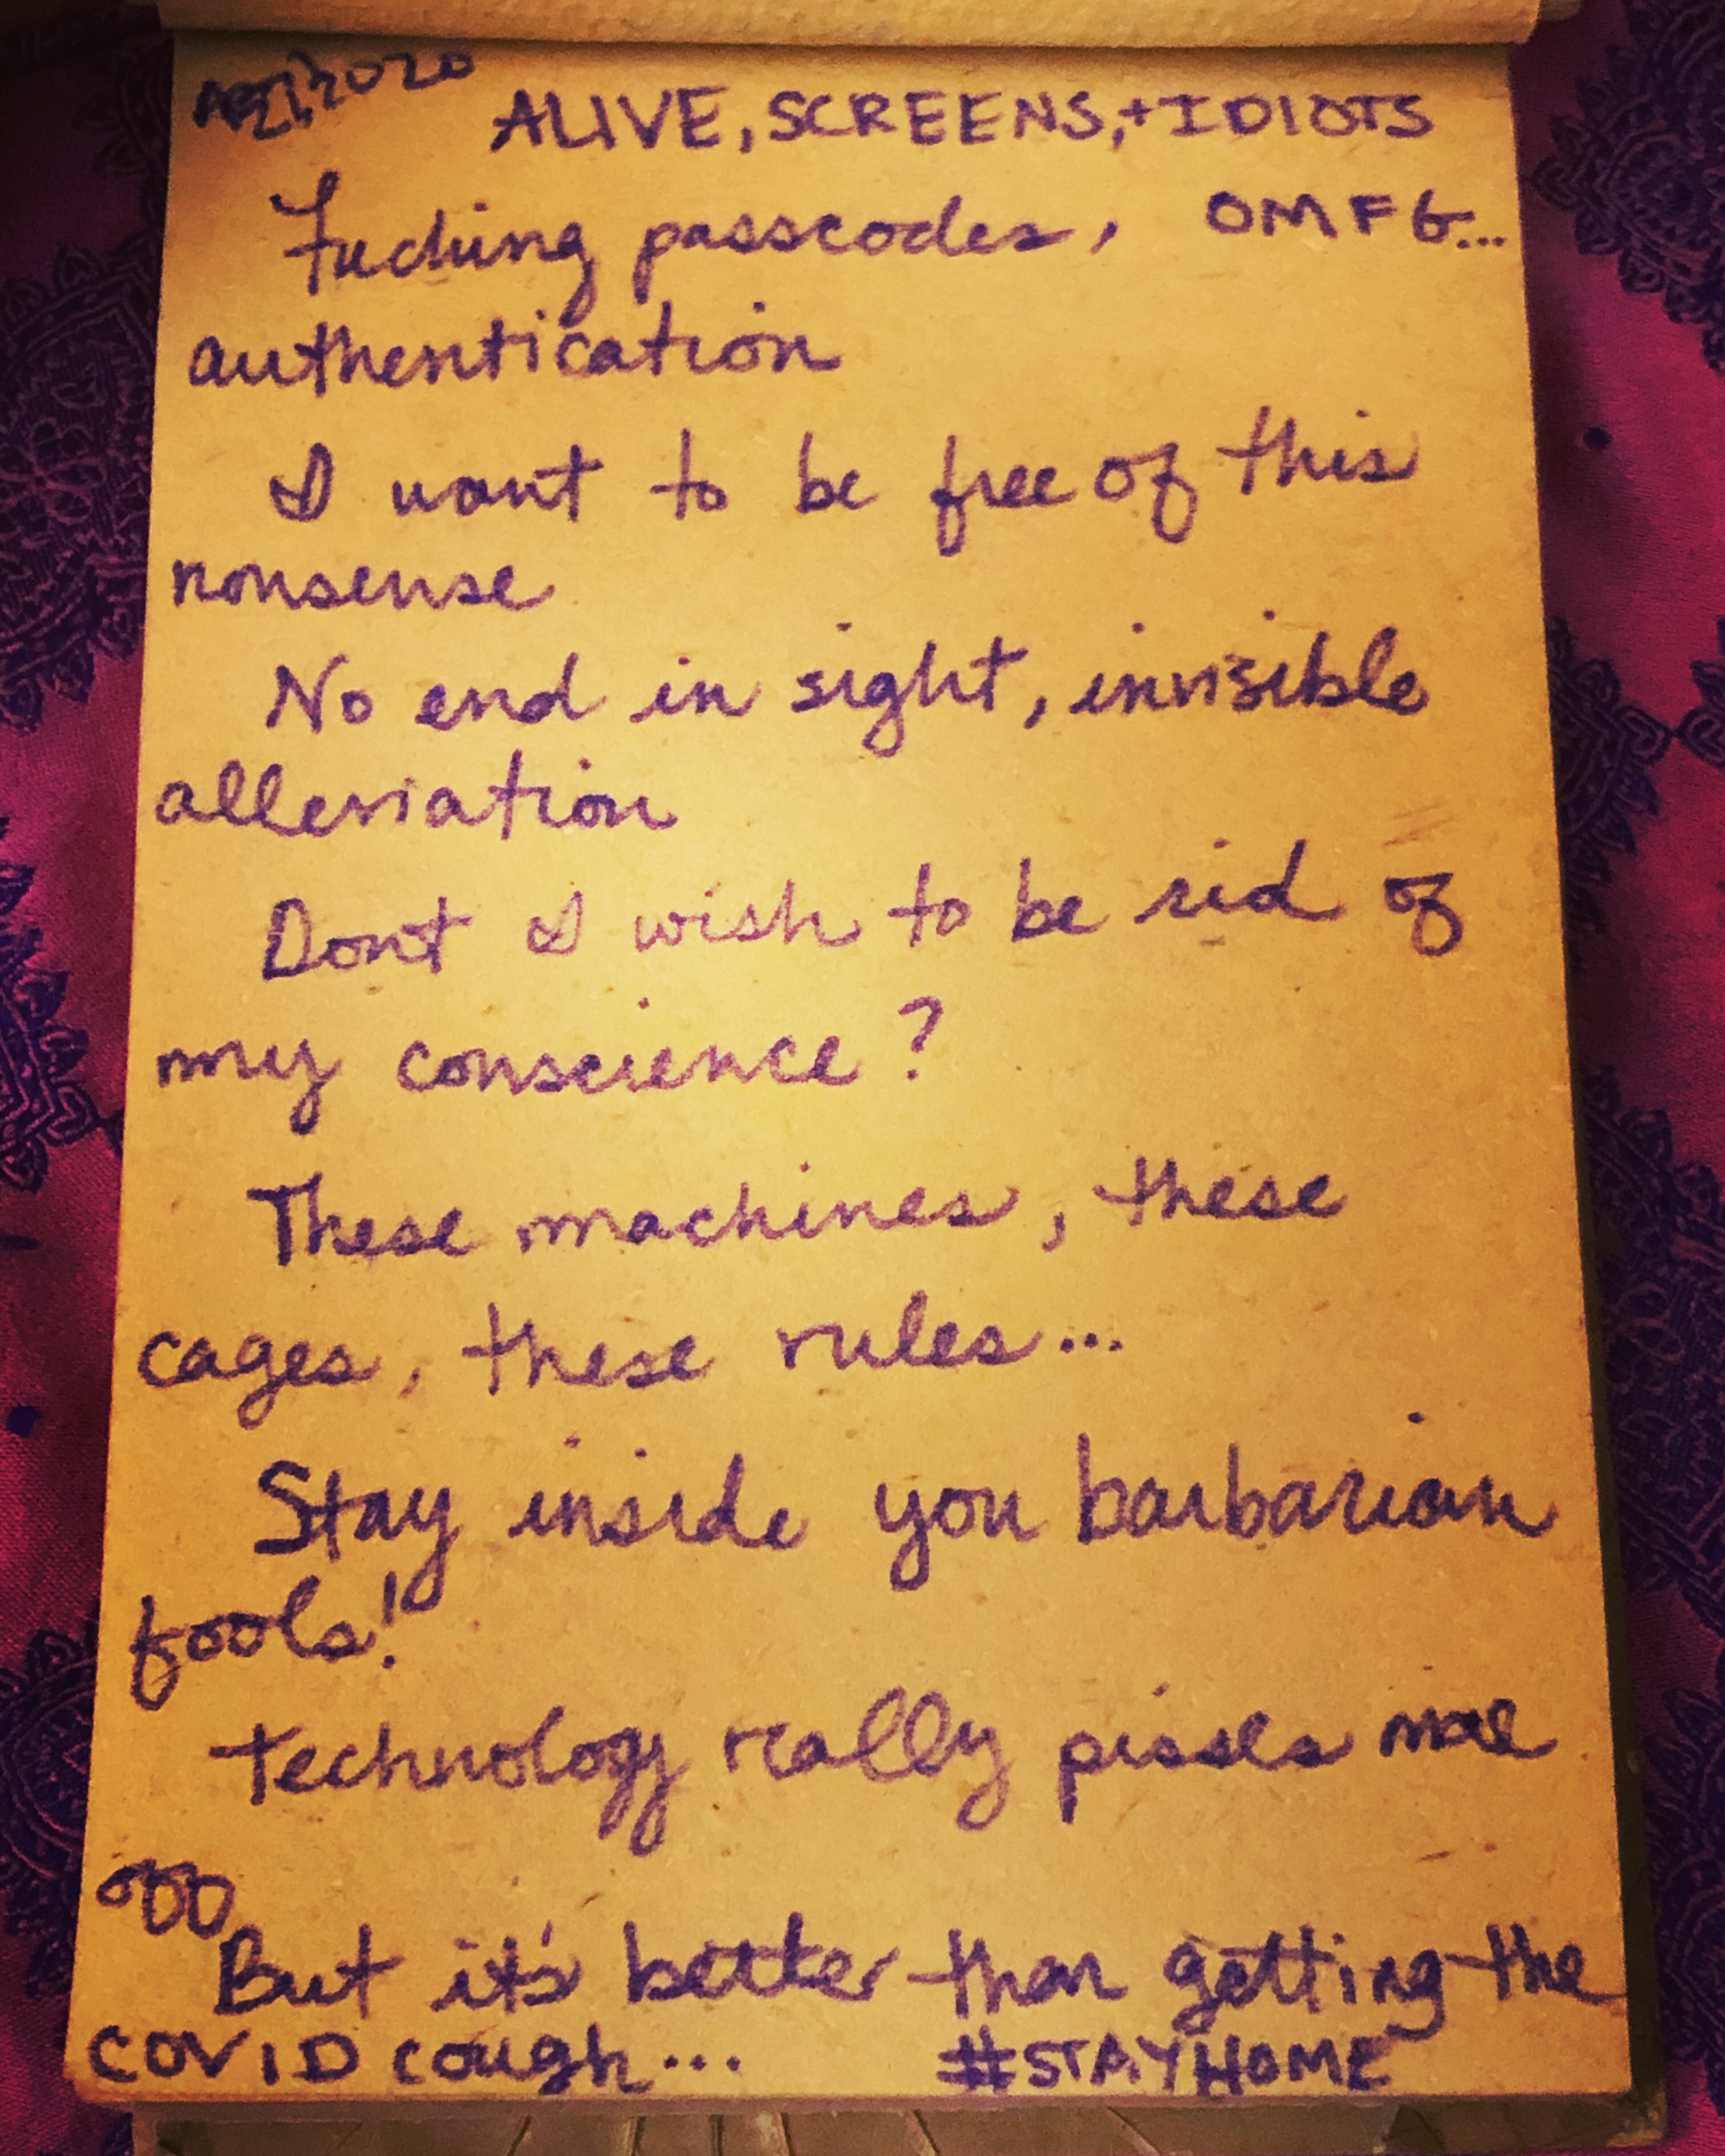 APR 2020
ALIVE, SCREENS, + IDIOTS
Fucking passcodes, OMFG...
authentication
I want to be free of this
nonsense
No end in sight, invisible
alleviation
Dont I wish to be rid of
my conscience?
These machines, these
cages, these rules...
Stay inside you barbarian
fools!
Technology really pisses me
off
But it's better than getting the
COVID cough... #STAYHOME